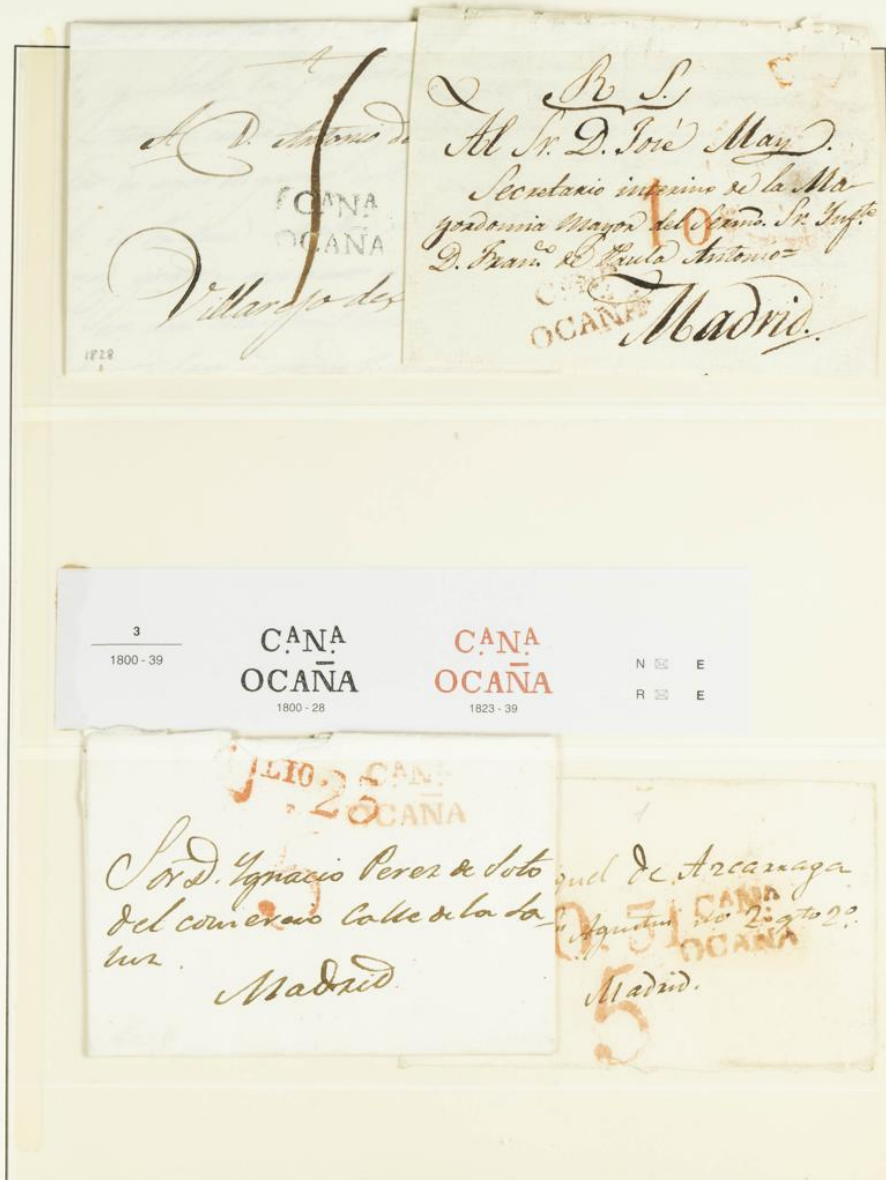 A D. Antonio de
C.A N.A
OCAÑA
Villarejo de
1828
R S.
Al Sr. D. José May
Secretario interino de la Ma-
yordomia Mayor del Sermo. Sr. Infte.
D. Franco. de Paula Antonio=
10
OCAÑA
Madrid.
3
1800 - 39
C.A N.A
OCAÑA
1800 - 28
C.A N.A
OCAÑA
1823 - 39
N E
R E
LIO. 25
C.A N.A
OCAÑA
Sor. D. Ygnacio Perez de Soto
del comercio Calle de la Sa-
luz.
Madrid
guel de Azcarraga
Agustin no. 2 qto 2o.
C.A N.A
OCAÑA
Madrid.
5